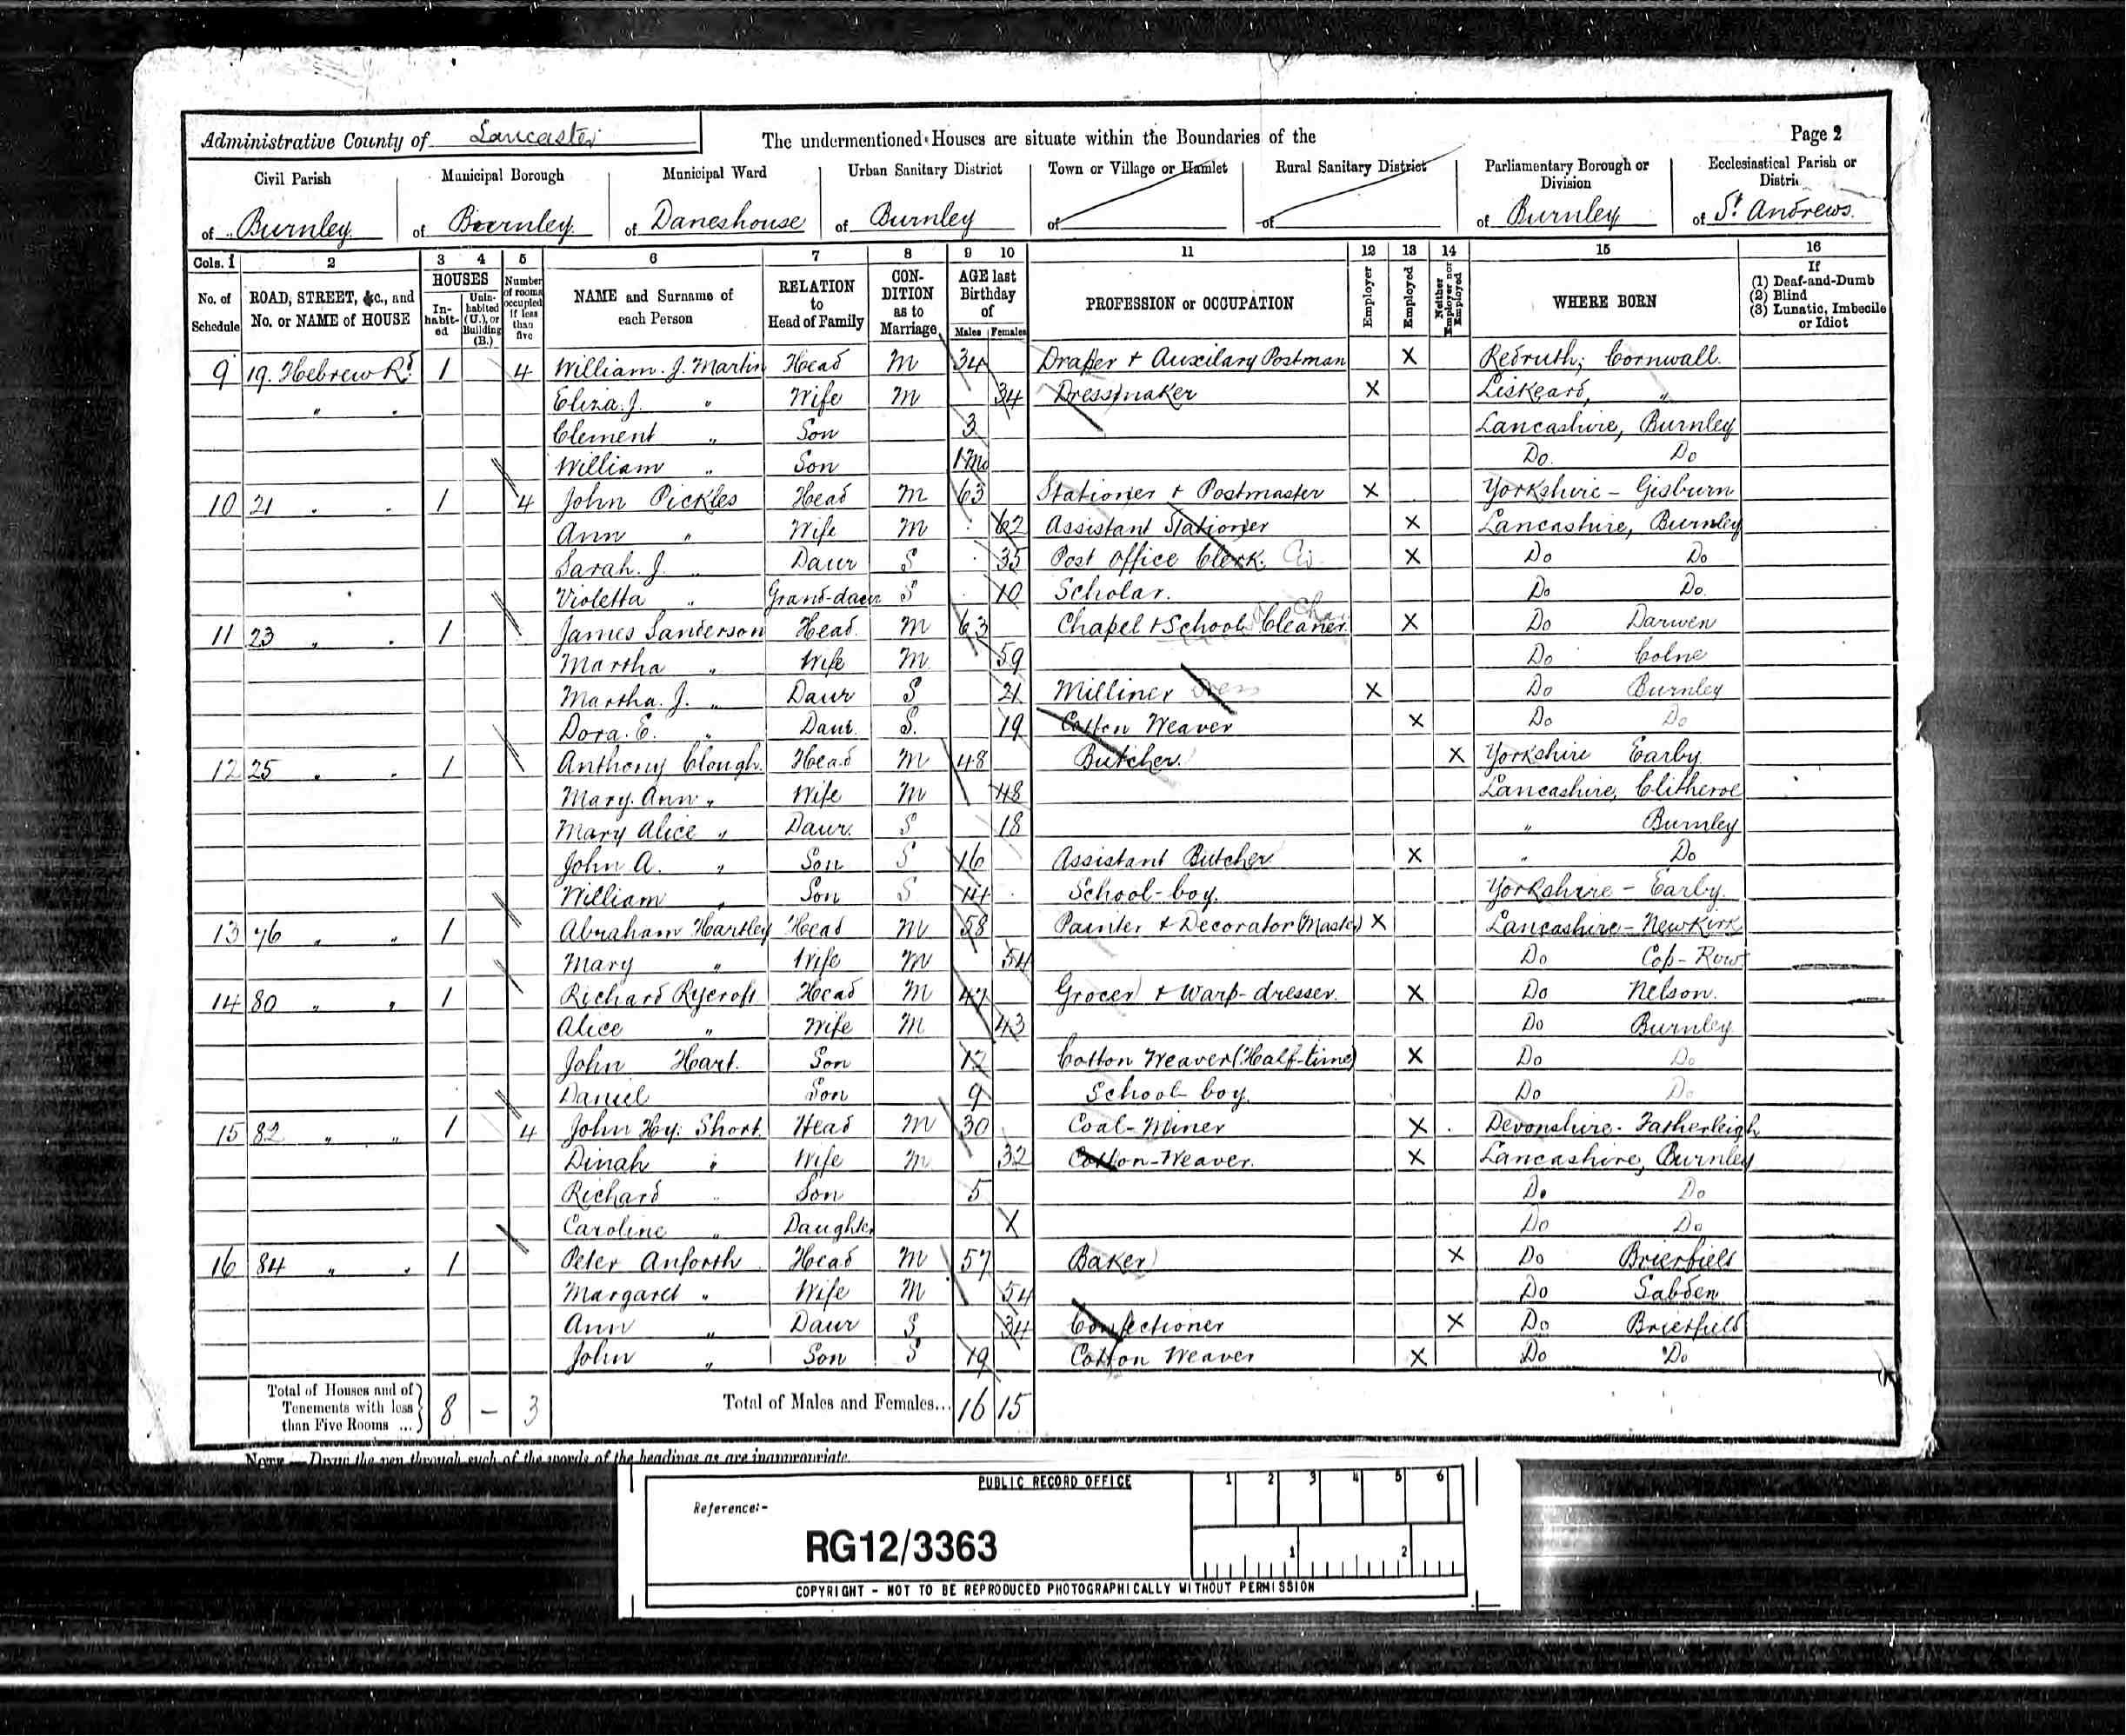 Administrative County of Lancaster
The undermentioned Houses are situate within the Boundaries of the
Page 2
Civil Parish of Burnley
Municipal Borough of Burnley
Municipal Ward of Daneshouse
Urban Sanitary District of Burnley
Town or Village or Hamlet of
Rural Sanitary District of
Parliamentary Borough or Division of Burnley
Ecclesiastical Parish or District of St Andrews
Cols. 1 2 3 4 5 6 7 8 9 10 11 12 13 14 15 16
No. of Schedule
ROAD, STREET, &c., and No. or NAME of HOUSE
HOUSES
In-habit-ed
Unin-habited (U.), or Building (B.)
Number of rooms occupied if less than five
NAME and Surname of each Person
RELATION to Head of Family
CON-DITION as to Marriage
AGE last Birthday of
Males Females
PROFESSION or OCCUPATION
Employer
Employed
Neither Employer nor Employed
WHERE BORN
If
(1) Deaf-and-Dumb
(2) Blind
(3) Lunatic, Imbecile or Idiot
9 19. Hebrew Rd. 1 4 William. J. Martin Head M 34 Draper & Auxilary Postman X Redruth; Cornwall.
" . Eliza. J. " Wife M 34 Dressmaker X Liskeard, "
Clement " Son 3 Lancashire, Burnley
William " Son 1 Mo Do. Do
10 21 . . 1 4 John Pickles Head M 63 Stationer & Postmaster X Yorkshire - Gisburn
Ann " Wife M 62 Assistant Stationer X Lancashire, Burnley
Sarah. J. " Daur S 35 Post Office Clerk. X Do Do
Violetta " Grand-daur S 10 Scholar. Do Do.
11 23 " . 1 James Sanderson Head. M 63 Chapel & School Cleaner. X Do Darwen
Martha " Wife M 59 Do Colne
Martha. J. " Daur S 21 Milliner X Do Burnley
Dora. E. " Daur. S. 19 Cotton Weaver X Do Do
12 25 . . 1 Anthony Clough. Head M 48 Butcher. X Yorkshire Earby
Mary. Ann " Wife M 48 Lancashire, Clitheroe
Mary Alice " Daur. S 18 " Burnley
John A. " Son S 16 Assistant Butcher X " Do
William " Son S 14 School-boy. Yorkshire - Earby.
13 76 " " 1 Abraham Hartley Head M 58 Painter & Decorator (Master) X Lancashire - NewKirk
Mary " Wife M 54 Do Cop-Row
14 80 " " 1 Richard Rycroft Head M 47 Grocer & Warp-dresser. X Do Nelson.
Alice " Wife M 43 Do Burnley
John Hart. Son 12 Cotton Weaver (Half-time) X Do Do
Daniel Son 9 School boy. Do Do
15 82 " " 1 4 John Hy. Short. Head M 30 Coal-Miner X Devonshire. Hatherleigh
Dinah " Wife M 32 Cotton-Weaver. X Lancashire, Burnley
Richard " Son 5 Do Do
Caroline " Daughter X Do Do
16 84 " " 1 Peter Anforth Head M 57 Baker X Do Brierfield
Margaret " Wife M 54 Do Sabden
Ann " Daur S 34 Confectioner X Do Brierfield
John " Son S 19 Cotton Weaver X Do Do
Total of Houses and of Tenements with less than Five Rooms ... 8 - 3
Total of Males and Females... 16 15
NOTE.—Draw the pen through such of the words of the headings as are inappropriate.
PUBLIC RECORD OFFICE
1 2 3 4 5 6
Reference:-
RG12/3363
1 2
COPYRIGHT - NOT TO BE REPRODUCED PHOTOGRAPHICALLY WITHOUT PERMISSION